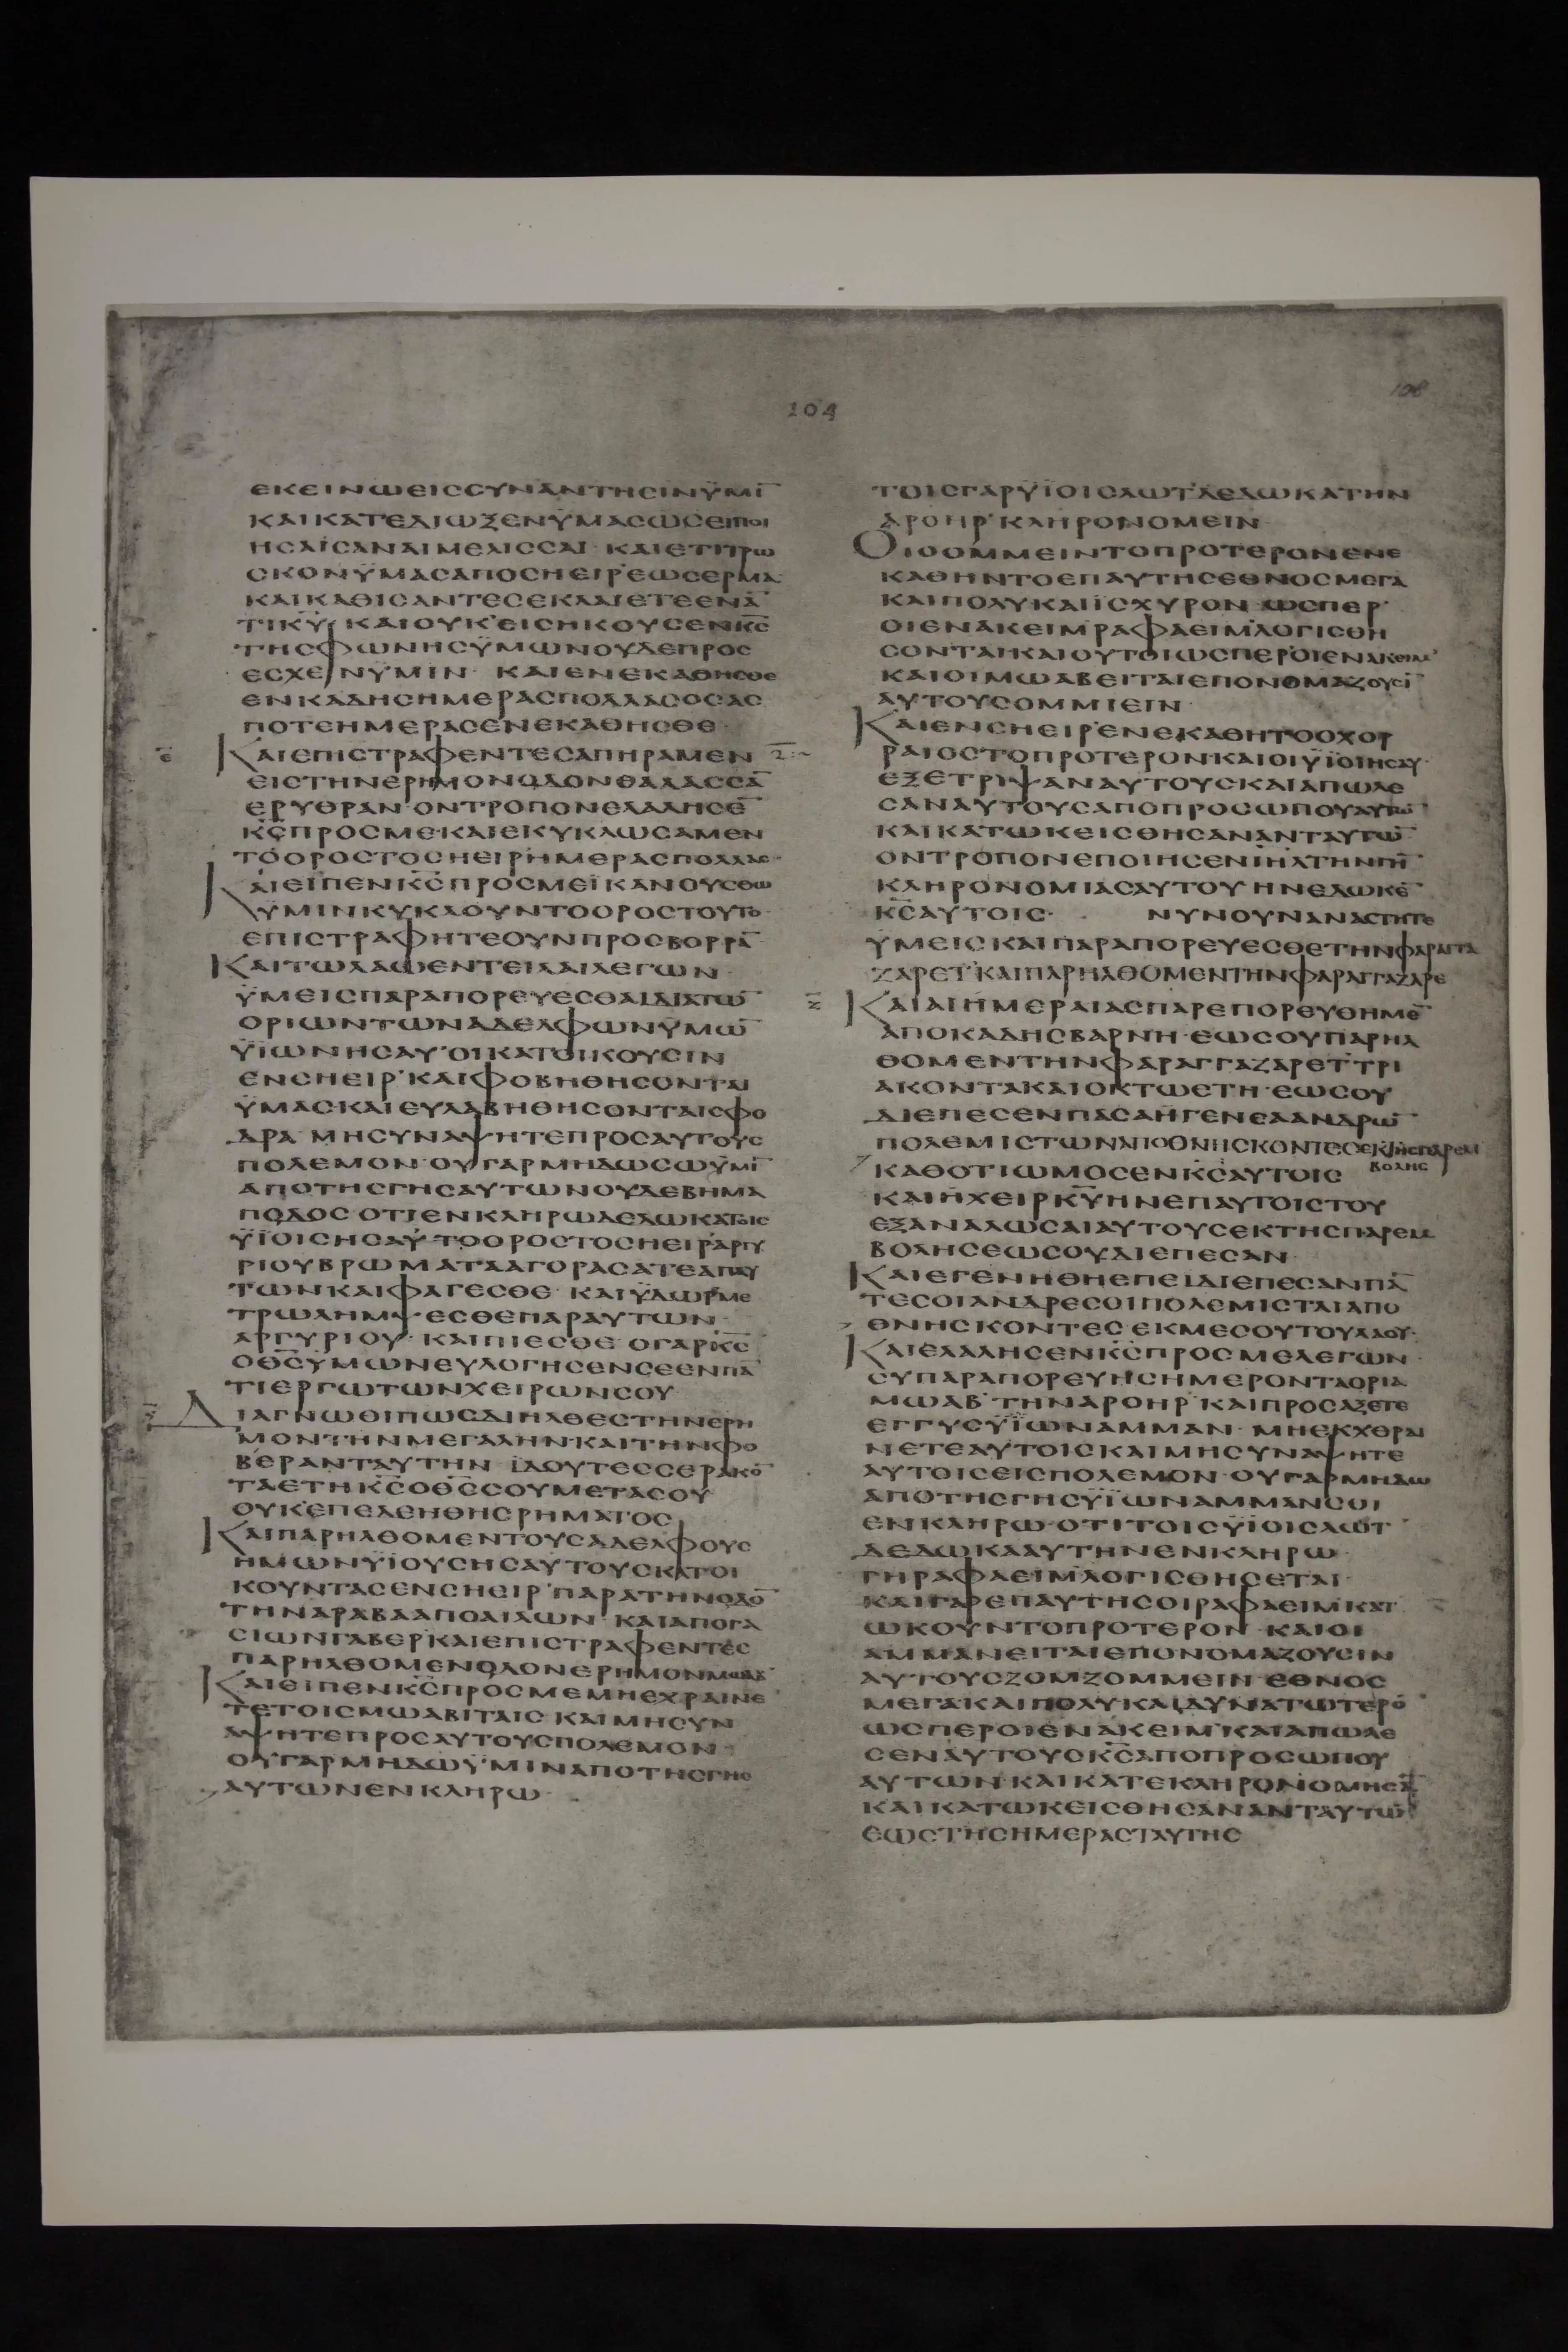 104
108
ΕΚΕΙΝΩΕΙΣΣΥΝΑΝΤΗΣΙΝΫΜΙ̅
ΚΑΙΚΑΤΕΔΙΩΞΕΝΫΜΑΣΩΣΕΙΠΟΙ
ΗΣΑΙΣΑΝΑΙΜΕΛΙΣΣΑΙ· ΚΑΙΕΤΙΤΡΩ
ΣΚΟΝΫΜΑΣΑΠΟΣΗΕΙΡ'ΕΩΣΕΡΜΑ·
ΚΑΙΚΑΘΙΣΑΝΤΕΣΕΚΛΑΙΕΤΕΕΝΑ̅
ΤΙΚ̅Υ̅· ΚΑΙΟΥΚ'ΕΙΣΗΚΟΥΣΕΝΚ̅Σ̅
ΤΗΣΦΩΝΗΣΫΜΩΝΟΥΔΕΠΡΟΣ
ΕΣΧΕΝΫΜΙΝ· ΚΑΙΕΝΕΚΑΘΗΣΘΕ
ΕΝΚΑΔΗΣΗΜΕΡΑΣΠΟΛΛΑΣΟΣΑΣ
ΠΟΤΕΗΜΕΡΑΣΕΝΕΚΑΘΗΣΘΕ·
ΚΑΙΕΠΙΣΤΡΑΦΕΝΤΕΣΑΠΗΡΑΜΕΝ
ΕΙΣΤΗΝΕΡΗΜΟΝΟΔΟΝΘΑΛΑΣΣΑ̅
ΕΡΥΘΡΑΝ·ΟΝΤΡΟΠΟΝΕΛΑΛΗΣΕ̅
Κ̅Σ̅ΠΡΟΣΜΕ·ΚΑΙΕΚΥΚΛΩΣΑΜΕΝ
ΤΟΟΡΟΣΤΟΣΗΕΙΡΗΜΕΡΑΣΠΟΛΛΑΣ·
ΚΑΙΕΙΠΕΝΚ̅Σ̅ΠΡΟΣΜΕΪΚΑΝΟΥΣΘΩ
ΫΜΙΝΚΥΚΛΟΥΝΤΟΟΡΟΣΤΟΥΤΟ·
ΕΠΙΣΤΡΑΦΗΤΕΟΥΝΠΡΟΣΒΟΡΡΑ̅
ΚΑΙΤΩΛΑΩΕΝΤΕΙΛΑΙΛΕΓΩΝ·
ΫΜΕΙΣΠΑΡΑΠΟΡΕΥΕΣΘΑΙΔΙΑΤΩ̅
ΟΡΙΩΝΤΩΝΑΔΕΛΦΩΝΫΜΩ̅
ΫΙΩΝΗΣΑΥ'ΟΙΚΑΤΟΙΚΟΥΣΙΝ
ΕΝΣΗΕΙΡ'ΚΑΙΦΟΒΗΘΗΣΟΝΤΑΙ
ΫΜΑΣΚΑΙΕΥΛΑΒΗΘΗΣΟΝΤΑΙΣΦΟ
ΔΡΑ· ΜΗΣΥΝΑΨΗΤΕΠΡΟΣΑΥΤΟΥΣ
ΠΟΛΕΜΟΝ·ΟΥΓΑΡΜΗΔΩΣΩΫΜΙ̅
ΑΠΟΤΗΣΓΗΣΑΥΤΩΝΟΥΔΕΒΗΜΑ
ΠΟΔΟΣ·ΟΤΙΕΝΚΛΗΡΩΔΕΔΩΚΑΤΟΙΣ
ΫΪΟΙΣΗΣΑΥ·ΤΟΟΡΟΣΤΟΣΗΕΙΡ'ΑΡΓΥ
ΡΙΟΥΒΡΩΜΑΤΑΑΓΟΡΑΣΑΤΕΑΠΑΥ
ΤΩΝΚΑΙΦΑΓΕΣΘΕ· ΚΑΙΫΔΩΡ'ΜΕ
ΤΡΩΛΗΜΨΕΣΘΕΠΑΡΑΥΤΩΝ·
ΑΡΓΥΡΙΟΥ· ΚΑΙΠΙΕΣΘΕ· ΟΓΑΡΚ̅Σ̅
ΟΘ̅Σ̅ΫΜΩΝΕΥΛΟΓΗΣΕΝΣΕΕΝΠΑ̅
ΤΙΕΡΓΩΤΩΝΧΕΙΡΩΝΣΟΥ
ΔΙΑΓΝΩΘΙΠΩΣΔΙΗΛΘΕΣΤΗΝΕΡΗ
ΜΟΝΤΗΝΜΕΓΑΛΗΝ·ΚΑΙΤΗΝΦΟ
ΒΕΡΑΝΤΑΥΤΗΝ· ΪΔΟΥΤΕΣΣΕΡΑΚΟ̅
ΤΑΕΤΗΚ̅Σ̅ΟΘ̅Σ̅ΣΟΥΜΕΤΑΣΟΥ·
ΟΥΚ'ΕΠΕΔΕΗΘΗΣΡΗΜΑΤΟΣ
ΚΑΙΠΑΡΗΛΘΟΜΕΝΤΟΥΣΑΔΕΛΦΟΥΣ
ΗΜΩΝΫΙΟΥΣΗΣΑΥΤΟΥΣΚΑΤΟΙ
ΚΟΥΝΤΑΣΕΝΣΗΕΙΡ'ΠΑΡΑΤΗΝΟΔΟ̅
ΤΗΝΑΡΑΒΑΑΠΟΑΙΛΩΝ· ΚΑΙΑΠΟΓΑ
ΣΙΩΝΓΑΒΕΡ·ΚΑΙΕΠΙΣΤΡΑΦΕΝΤΕΣ
ΠΑΡΗΛΘΟΜΕΝΟΔΟΝΕΡΗΜΟΝΜΩΑΒ'
ΚΑΙΕΙΠΕΝΚ̅Σ̅ΠΡΟΣΜΕΜΗΕΧΡΑΙΝΕ
ΤΕΤΟΙΣΜΩΑΒΙΤΑΙΣ· ΚΑΙΜΗΣΥΝ
ΑΨΗΤΕΠΡΟΣΑΥΤΟΥΣΠΟΛΕΜΟΝ·
ΟΥΓΑΡΜΗΔΩΫΜΙΝΑΠΟΤΗΣΓΗΣ
ΑΥΤΩΝΕΝΚΛΗΡΩ·
ΤΟΙΣΓΑΡΫΪΟΙΣΛΩΤ'ΔΕΔΩΚΑΤΗΝ
ΑΡΟΗΡ'ΚΛΗΡΟΝΟΜΕΙΝ
ΟΙΟΟΜΜΕΙΝΤΟΠΡΟΤΕΡΟΝΕΝΕ
ΚΑΘΗΝΤΟΕΠΑΥΤΗΣΕΘΝΟΣΜΕΓΑ
ΚΑΙΠΟΛΥΚΑΙΪΣΧΥΡΟΝ·ΩΣΠΕΡ'
ΟΙΕΝΑΚΕΙΜ'ΡΑΦΑΕΙΜ'ΛΟΓΙΣΘΗ
ΣΟΝΤΑΙΚΑΙΟΥΤΟΙΩΣΠΕΡ'ΟΙΕΝΑΚΕΙΜ'
ΚΑΙΟΙΜΩΑΒΕΙΤΑΙΕΠΟΝΟΜΑΖΟΥΣΙ̅
ΑΥΤΟΥΣΟΜΜΙΕΙΝ·
ΚΑΙΕΝΣΗΕΙΡ'ΕΝΕΚΑΘΗΤΟΟΧΟΡ
ΡΑΙΟΣΤΟΠΡΟΤΕΡΟΝ·ΚΑΙΟΙΫΪΟΙΗΣΑΥ·
ΕΞΕΤΡΙΨΑΝΑΥΤΟΥΣΚΑΙΑΠΩΛΕ
ΣΑΝΑΥΤΟΥΣΑΠΟΠΡΟΣΩΠΟΥΑΥΤΩ̅
ΚΑΙΚΑΤΩΚΕΙΣΘΗΣΑΝΑΝΤΑΥΤΩ̅
ΟΝΤΡΟΠΟΝΕΠΟΙΗΣΕΝΙ̅Η̅Λ̅ΤΗΝΓΗ̅
ΚΛΗΡΟΝΟΜΙΑΣΑΥΤΟΥΗΝΕΔΩΚΕ̅
Κ̅Σ̅ΑΥΤΟΙΣ· ΝΥΝΟΥΝΑΝΑΣΤΗΤΕ
ΫΜΕΙΣΚΑΙΠΑΡΑΠΟΡΕΥΕΣΘΕΤΗΝΦΑΡΑΓΓΑ
ΖΑΡΕΤ'ΚΑΙΠΑΡΗΛΘΟΜΕΝΤΗΝΦΑΡΑΓΓΑΖΑΡΕ
ΚΑΙΑΙΗΜΕΡΑΙΑΣΠΑΡΕΠΟΡΕΥΘΗΜΕ̅
ΑΠΟΚΑΔΗΣΒΑΡΝΗ·ΕΩΣΟΥΠΑΡΗΛ
ΘΟΜΕΝΤΗΝΦΑΡΑΓΓΑΖΑΡΕΤ'ΤΡΙ
ΑΚΟΝΤΑΚΑΙΟΚΤΩΕΤΗ·ΕΩΣΟΥ
ΔΙΕΠΕΣΕΝΠΑΣΑΗΓΕΝΕΑΑΝΔΡΩ̅
ΠΟΛΕΜΙΣΤΩΝΑΠΟΘΝΗΣΚΟΝΤΕΣΕΚΤΗΣΠΑΡΕΜ
ΒΟΛΗΣ
ΚΑΘΟΤΙΩΜΟΣΕΝΚ̅Σ̅ΑΥΤΟΙΣ
ΚΑΙΗΧΕΙΡΚ̅Υ̅ΗΝΕΠΑΥΤΟΙΣΤΟΥ
ΕΞΑΝΑΛΩΣΑΙΑΥΤΟΥΣΕΚΤΗΣΠΑΡΕΜ
ΒΟΛΗΣΕΩΣΟΥΔΙΕΠΕΣΑΝ·
ΚΑΙΕΓΕΝΗΘΗΕΠΕΙΔΙΕΠΕΣΑΝΠΑ̅
ΤΕΣΟΙΑΝΔΡΕΣΟΙΠΟΛΕΜΙΣΤΑΙΑΠΟ
ΘΝΗΣΚΟΝΤΕΣ·ΕΚΜΕΣΟΥΤΟΥΛΑΟΥ·
ΚΑΙΕΛΑΛΗΣΕΝΚ̅Σ̅ΠΡΟΣΜΕΛΕΓΩΝ·
ΣΥΠΑΡΑΠΟΡΕΥΗΣΗΜΕΡΟΝΤΑΟΡΙΑ
ΜΩΑΒ'ΤΗΝΑΡΟΗΡ'ΚΑΙΠΡΟΣΑΞΕΤΕ
ΕΓΓΥΣΫΪΩΝΑΜΜΑΝ·ΜΗΕΚΧΘΡΑΙ
ΝΕΤΕΑΥΤΟΙΣΚΑΙΜΗΣΥΝΑΨΗΤΕ
ΑΥΤΟΙΣΕΙΣΠΟΛΕΜΟΝ·ΟΥΓΑΡΜΗΔΩ
ΑΠΟΤΗΣΓΗΣΫΪΩΝΑΜΜΑΝΣΟΙ
ΕΝΚΛΗΡΩ·ΟΤΙΤΟΙΣΫΪΟΙΣΛΩΤ'
ΔΕΔΩΚΑΑΥΤΗΝΕΝΚΛΗΡΩ·
ΓΗΡΑΦΑΕΙΜ'ΛΟΓΙΣΘΗΣΕΤΑΙ·
ΚΑΙΓΑΡΕΠΑΥΤΗΣΟΙΡΑΦΑΕΙΜ'ΚΑΤ
ΩΚΟΥΝΤΟΠΡΟΤΕΡΟΝ· ΚΑΙΟΙ
ΑΜΜΑΝΕΙΤΑΙΕΠΟΝΟΜΑΖΟΥΣΙΝ
ΑΥΤΟΥΣΖΟΜ'ΖΟΜΜΕΙΝ·ΕΘΝΟΣ
ΜΕΓΑΚΑΙΠΟΛΥΚΑΙΔΥΝΑΤΩΤΕΡΟ̅
ΩΣΠΕΡΟΙΕΝΑΚΕΙΜ'ΚΑΙΑΠΩΛΕ
ΣΕΝΑΥΤΟΥΣΚ̅Σ̅ΑΠΟΠΡΟΣΩΠΟΥ
ΑΥΤΩΝ·ΚΑΙΚΑΤΕΚΛΗΡΟΝΟΜΗΣΑ̅
ΚΑΙΚΑΤΩΚΕΙΣΘΗΣΑΝΑΝΤΑΥΤΩ̅
ΕΩΣΤΗΣΗΜΕΡΑΣΤΑΥΤΗΣ